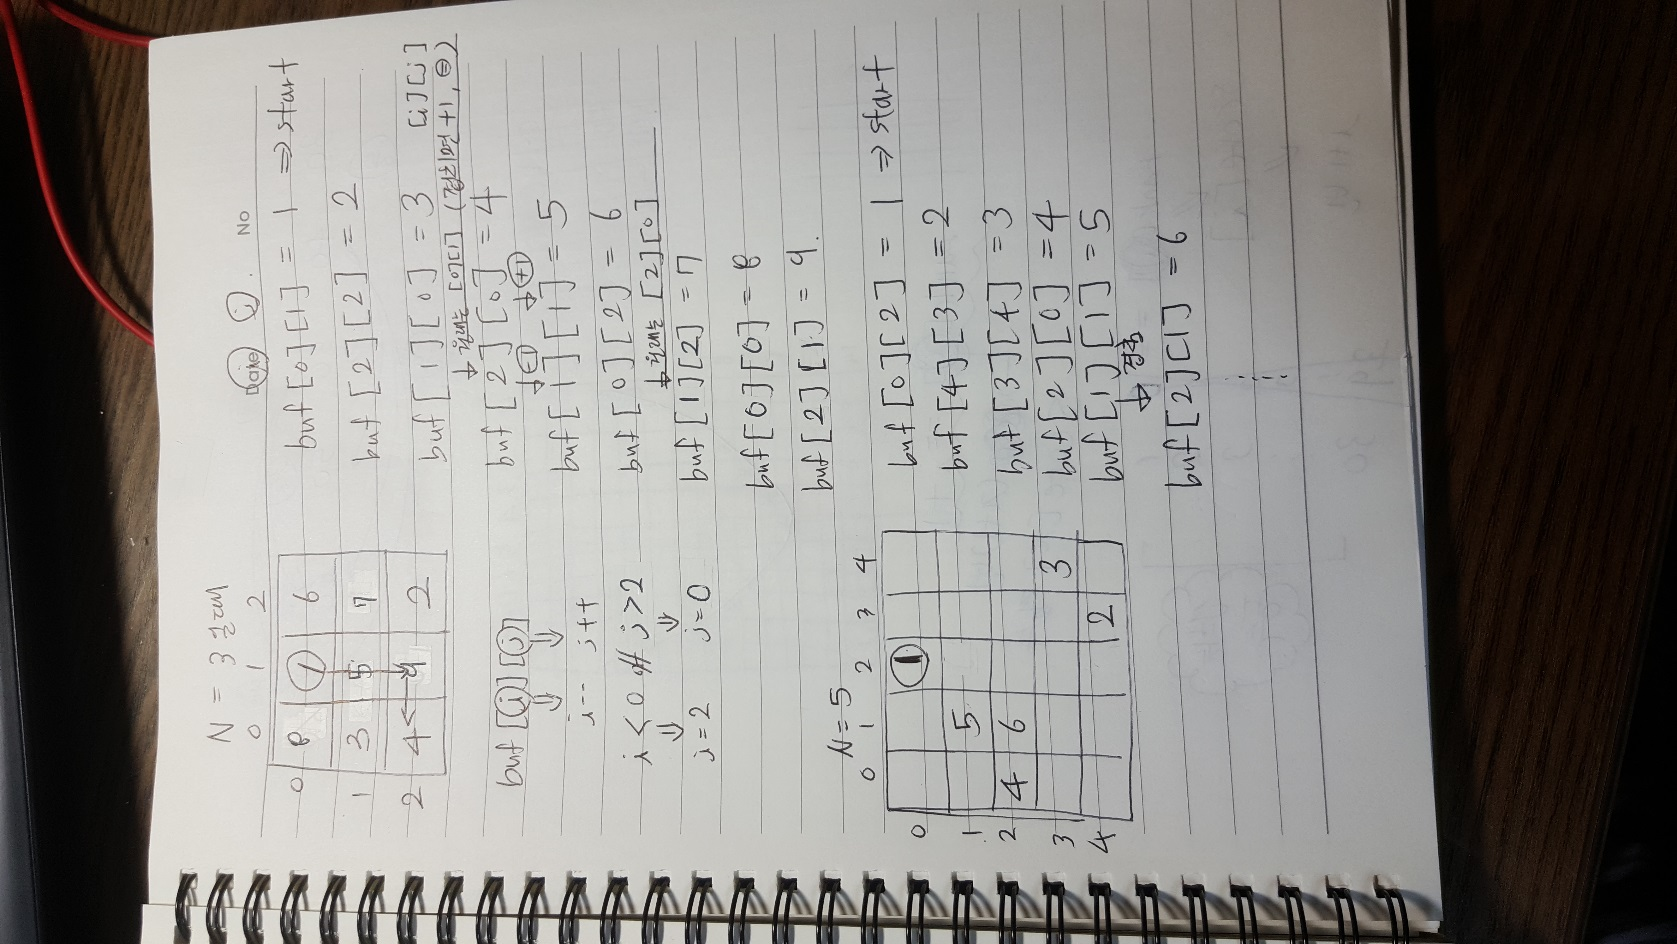 N = 3 일때
0 1 2
0 8 1 6
1 3 5 7
2 4 9 2
buf[i][j]
i-- j++
i<0 j>2
i=2 j=0
Date i j No
buf[0][1] = 1 ⇒start
buf[2][2] = 2
buf[1][0] = 3 [i][j]
↓ 원래는 [0][1] (겹치면 +1, ⊖)
buf[2][0] = 4
↓ -1 ↓ +1
buf[1][1] = 5
buf[0][2] = 6
↓ 원래는 [2][0]
buf[1][2] = 7
buf[0][0] = 8
buf[2][1] = 9.
N=5
0 1 2 3 4
0 1
1 5
2 4 6
3 3
4 2
buf[0][2] = 1 ⇒start
buf[4][3] = 2
buf[3][4] = 3
buf[2][0] = 4
buf[1][1] = 5
buf[2][1] = 6